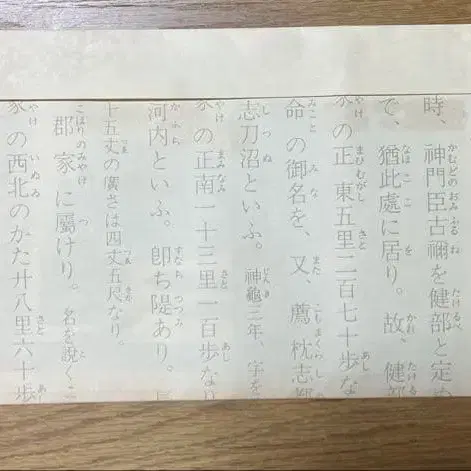 時、神門臣古禰を健部と定め
で、猶此處に居り。故、健部
家の正東五里二百七十步な
命の御名を、又、薦枕志都
志刀沼といふ。神龜三年、字を
家の正南一十三里一百步なり
河内といふ。卽ち隄あり。長
十五丈の廣さは四丈五尺なり。
郡家に屬けり。名を說くこ
家の西北のかた廿八里六十步